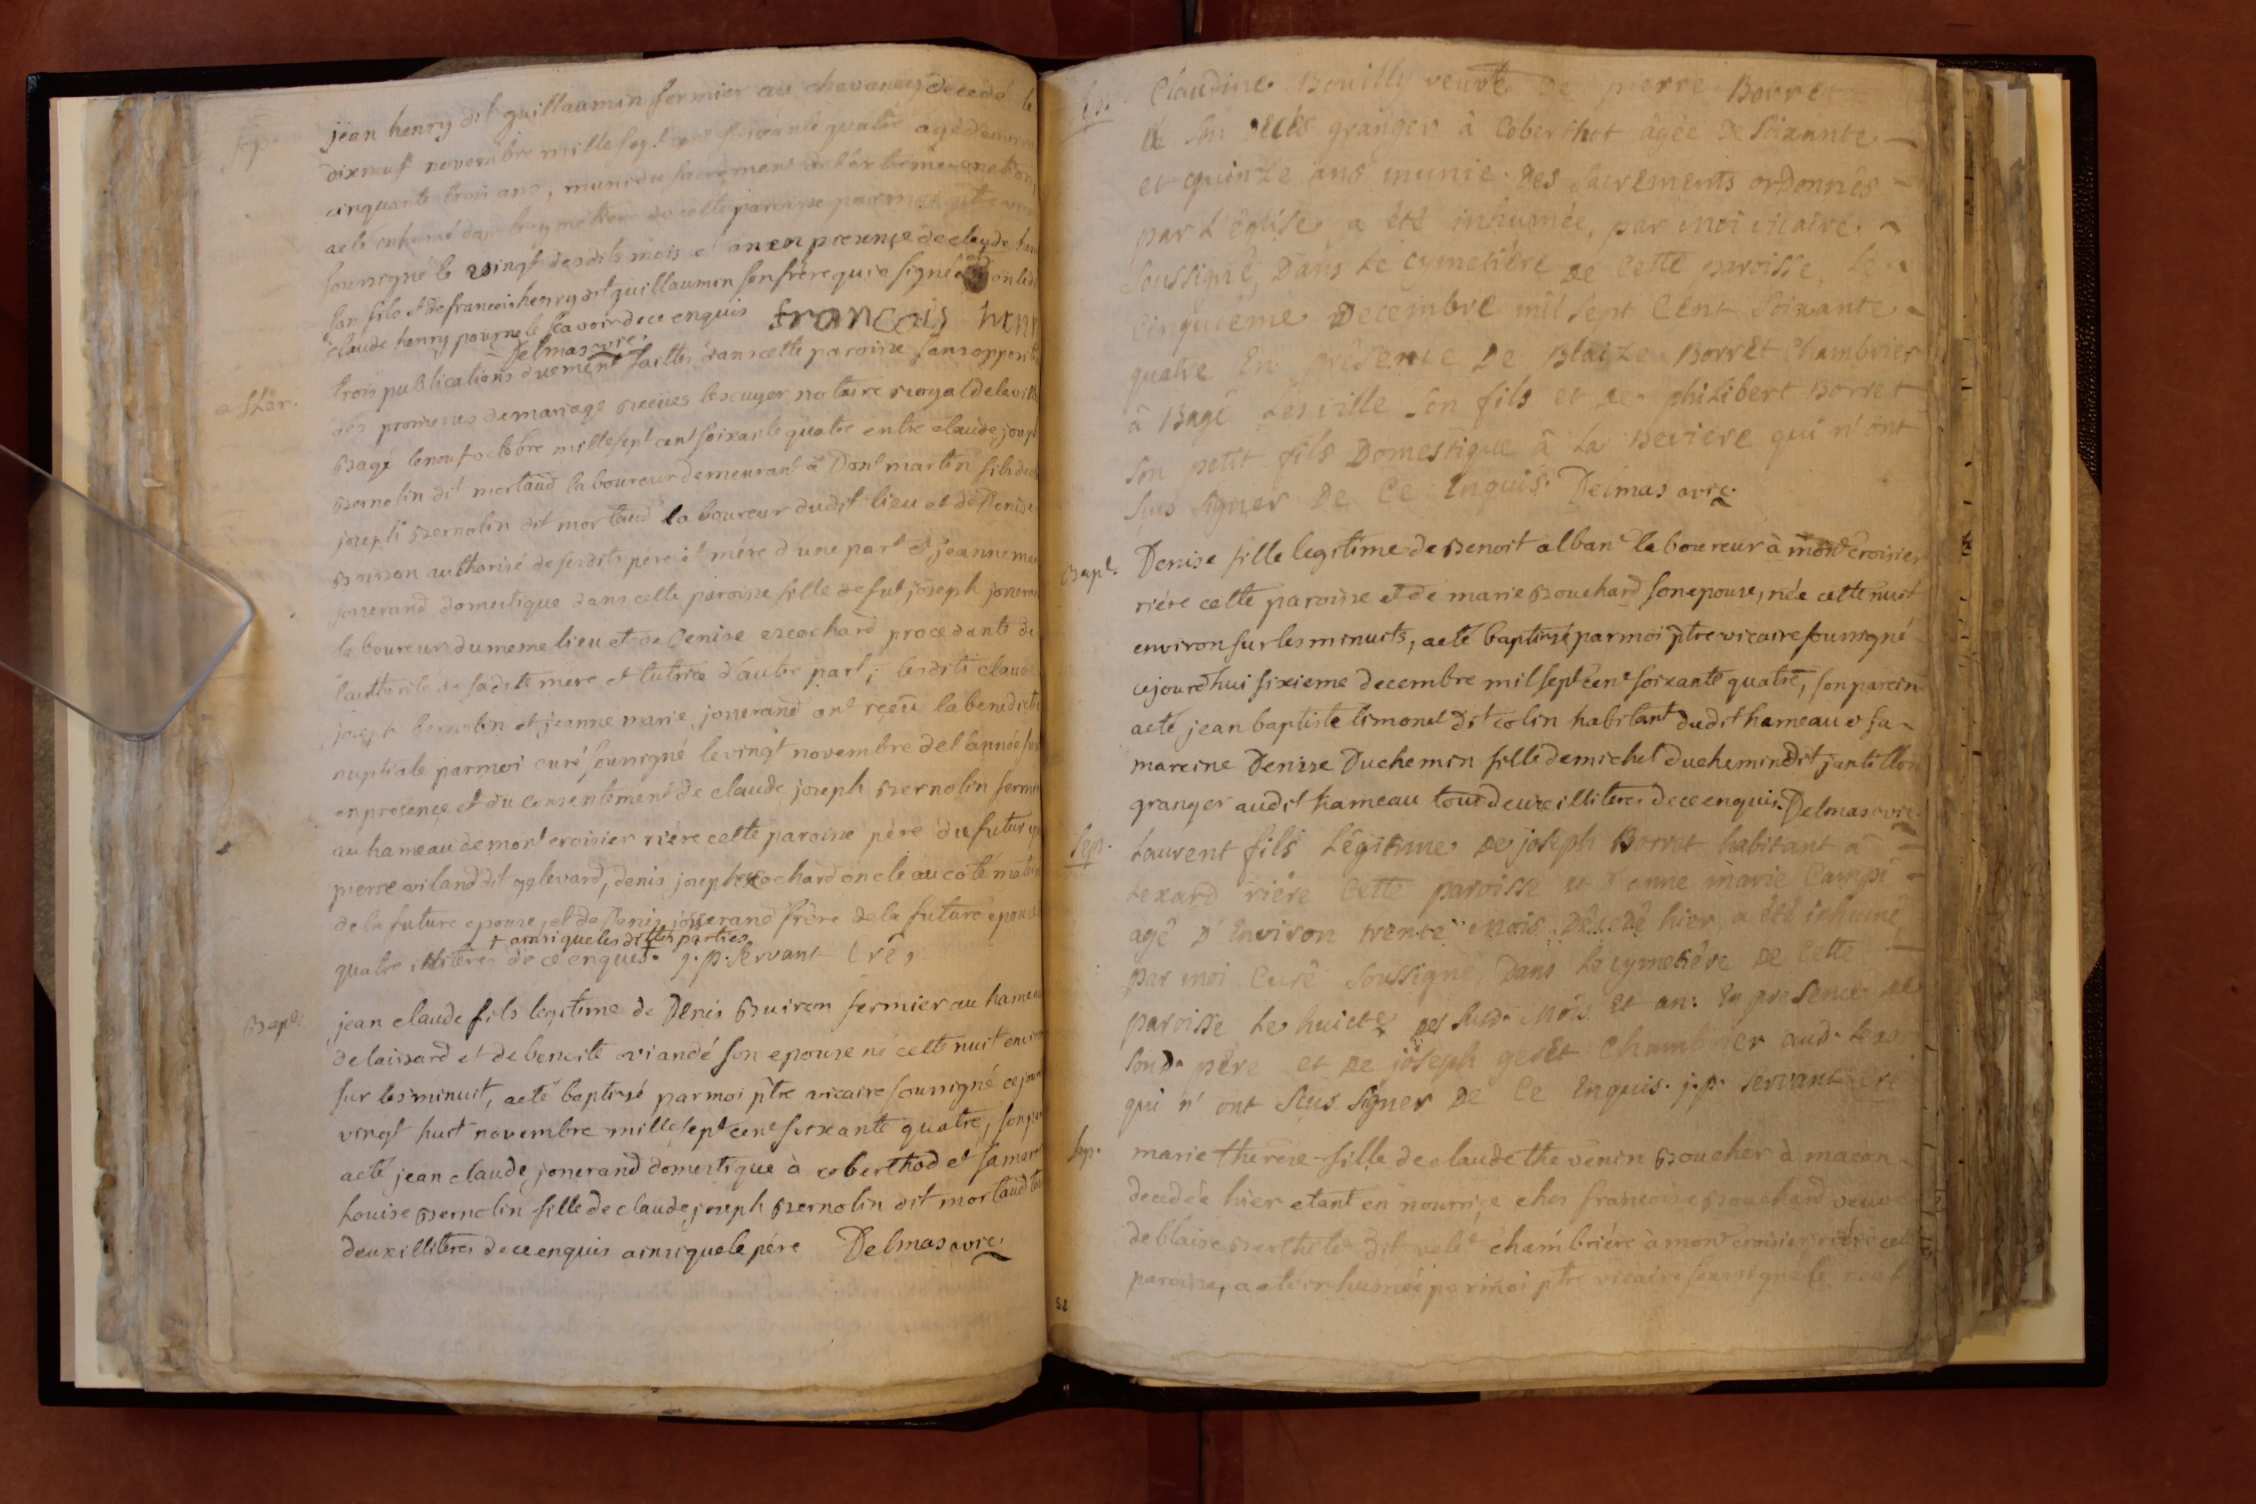 Sep.
jean henry dit guillaumin fermier au chavanney decedé le
dixneuf novembre mille sept cent soixante quatre agé d'environ
cinquante trois ans, muni du sacrement de l'extreme onction
a eté enhumé dans le cymetiere de cette paroisse par moi ptre vic
soussigné le vingt desdits mois et an en presence de claude henry
son fils et de francois henry dit guillaumin son frère qui a signé non ledit
claude henry pour ne le sçavoir de ce enquis francois henr
Delmas vic.
trois publications duement faittes dans cette paroisse sans opposit
des promesses de mariage reçues lescuyer notaire royal de la ville
Bagé le neuf octobre mille sept cent soixante quatre entre claude joseph
Bernolin dit mortaud laboureur demeurant à Dont martin fils de
joseph Bernolin dit mortaud laboureur dudit lieu et de Denise
Buisson authorisé de sesdits pere et mére d'une part et jeanne marie
josserand domestique dans cette paroisse fille de fut joseph josseran
laboureur du meme lieu et de Denise cochard procedante de
l'authorité de sadite mere et tutrice d'autre part; lesdits claude
joseph bernolin et jeanne marie josserand ont reçeu la benedicti
nuptiale par moi curé soussigné le vingt novembre de l'année sus
en presence et du consentement de claude joseph Bernolin fermi
au hameau de mont croisier riére cette paroisse pére du futur
pierre aviland dit galevard, denis joseph cochard oncle au coté mater
de la future epouse, et de Denis josserand frère de la future epouse
† ainsi que les dittes parties
quatre illiteres de ce enquis. † j. p. servant Cré,
Bapt.
jean claude fils legitime de Denis Buiron fermier au hameau
de laissard et de benoite viandé son epouse né cette nuit environ
sur les minuit, a eté baptisé par moi ptre vicaire soussigné ce jour
vingt huit novembre mille sept cent soixante quatre, son par
a eté jean claude josserand domestique à coberthod et sa mare
Louise Bernolin fille de claude joseph Bernolin dit mortaud tou
deux illiteres de ce enquis ainsi que le pére Delmas vic.
Claudine Bouilly veuve de pierre Borret
de son decès granger à Coberthot agée de soixante
et quinze ans munie des sacrements ordonnés
par L'église a été inhumée, par moi vicaire
soussigné, Dans Le cymetière de cette paroisse, Le
cinquième Decembre mil sept Cent soixante
quatre En présence De Blaize Borret Chambrier
à Bagé Lesville son fils et de philibert Borret
son petit fils Domestique à La Beviere qui n'ont
sus signer De Ce Enquis. Delmas vic.
Bapt.
Denise fille legitime de Benoit alban laboureur à mont croisier
riére cette paroisse et de marie Bouchard son epouse, née cette nuit
environ sur les minuits, a eté baptisé par moi ptre vicaire soussigné
cejourd'hui sixieme decembre mil sept cent soixante quatre, son parein
a eté jean baptiste timonet dit colin habitant dudit hameau & sa
mareine Denise Duchemin fille de michel duchemin dit jantillon
granger audit hameau tout deux illiteres de ce enquis. Delmas vic.
Sep.
Laurent fils Légitime De joseph Borret habitant à
Lexard rière Cette paroisse et d'anne marie Campi
agé D'Environ trente mois, Décédé hier, a été inhumé
par moi Curé soussigné, Dans Le cymetiére De Cette
paroisse Le huicte des susd. Mois et an: En presence de
sond. père et De joseph geret Chambrier aud. Lexar
qui n'ont sçus signer De Ce Enquis. j. p. servant cré
Sep.
marie therese fille de claude thevenin Boucher à macon
decedée hier etant en nourrice chez francoise Bouchard veuve
de blaise berthelet dit valet chambriére à mont croisier riére cette
paroisse, a eté inhumée par moi ptre vicaire soussigné le neuf
52